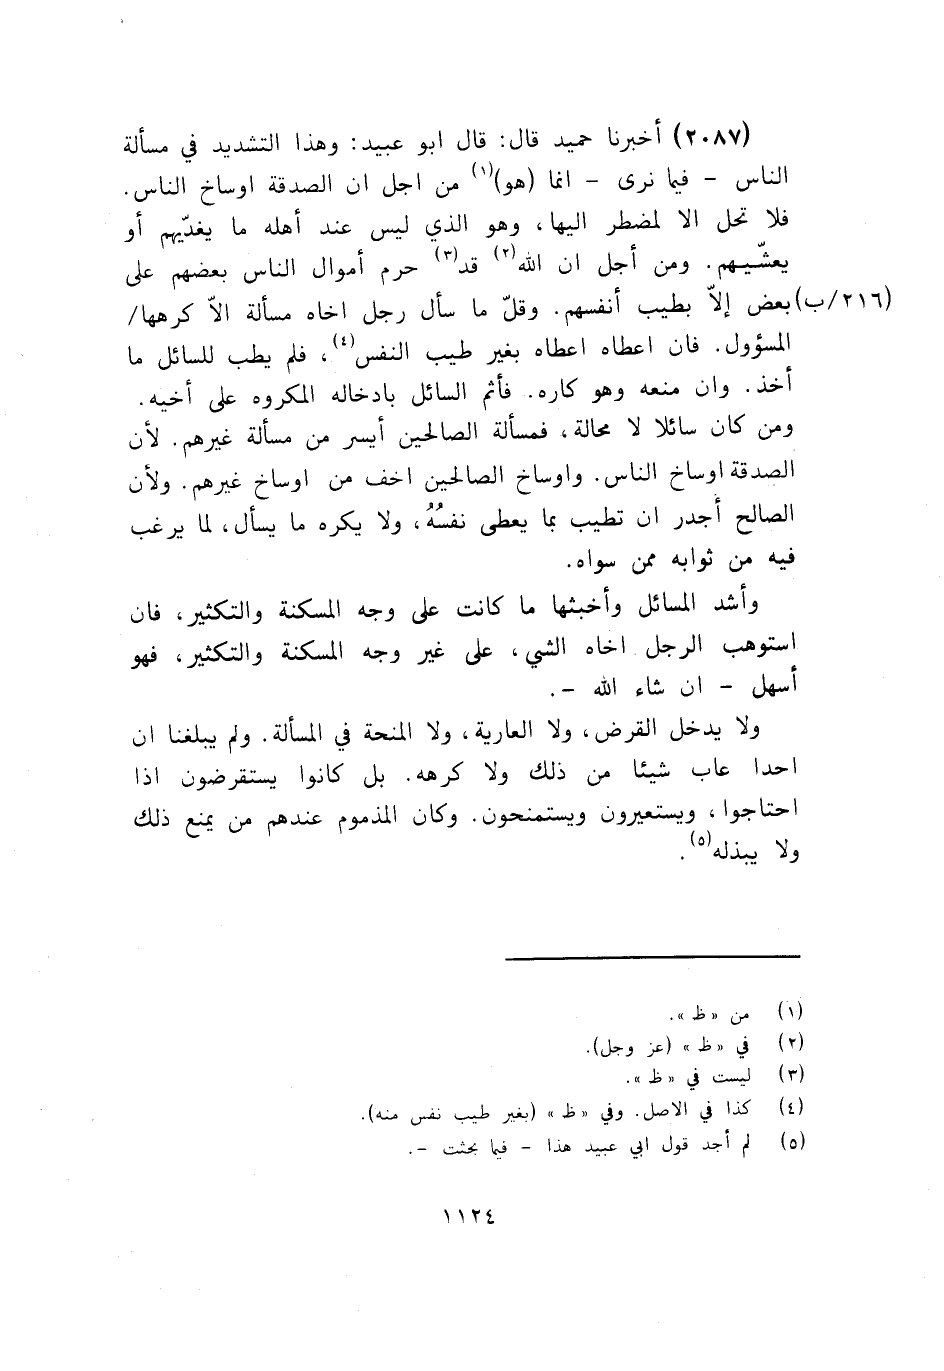 (٢٠٨٧) أخبرنا حميد قال: قال ابو عبيد: وهذا التشديد في مسألة
الناس - فيما نرى - انما (هو)(١) من اجل ان الصدقة اوساخ الناس.
فلا تحل الا لمضطر اليها، وهو الذي ليس عند أهله ما يغذّيهم أو
يعشّيهم. ومن أجل ان الله(٢) قد(٣) حرم أموال الناس بعضهم على
(٢١٦/ب) بعض إلاّ بطيب أنفسهم. وقلّ ما سأل رجل اخاه مسألة الاّ كرهها/
المسؤول. فان اعطاه اعطاه بغير طيب النفس(٤)، فلم يطب للسائل ما
أخذ. وان منعه وهو كاره. فأثم السائل بادخاله المكروه على أخيه.
ومن كان سائلا لا محالة، فمسألة الصالحين أيسر من مسألة غيرهم. لأن
الصدقة اوساخ الناس. واوساخ الصالحين اخف من اوساخ غيرهم. ولأن
الصالح أجدر ان تطيب بما يعطى نفسُهُ، ولا يكره ما يسأل، لما يرغب
فيه من ثوابه ممن سواه.
وأشد المسائل وأخبثها ما كانت على وجه المسكنة والتكثير، فان
استوهب الرجل اخاه الشي، على غير وجه المسكنة والتكثير، فهو
أسهل - ان شاء الله -.
ولا يدخل القرض، ولا العارية، ولا المنحة في المسألة. ولم يبلغنا ان
احدا عاب شيئا من ذلك ولا كرهه. بل كانوا يستقرضون اذا
احتاجوا، ويستعيرون ويستمنحون. وكان المذموم عندهم من يمنع ذلك
ولا يبذله(٥).
(١) من «ظ».
(٢) في «ظ» (عز وجل).
(٣) ليست في «ظ».
(٤) كذا في الاصل. وفي «ظ» (بغير طيب نفس منه).
(٥) لم أجد قول ابي عبيد هذا - فيما بحثت -.
١١٢٤